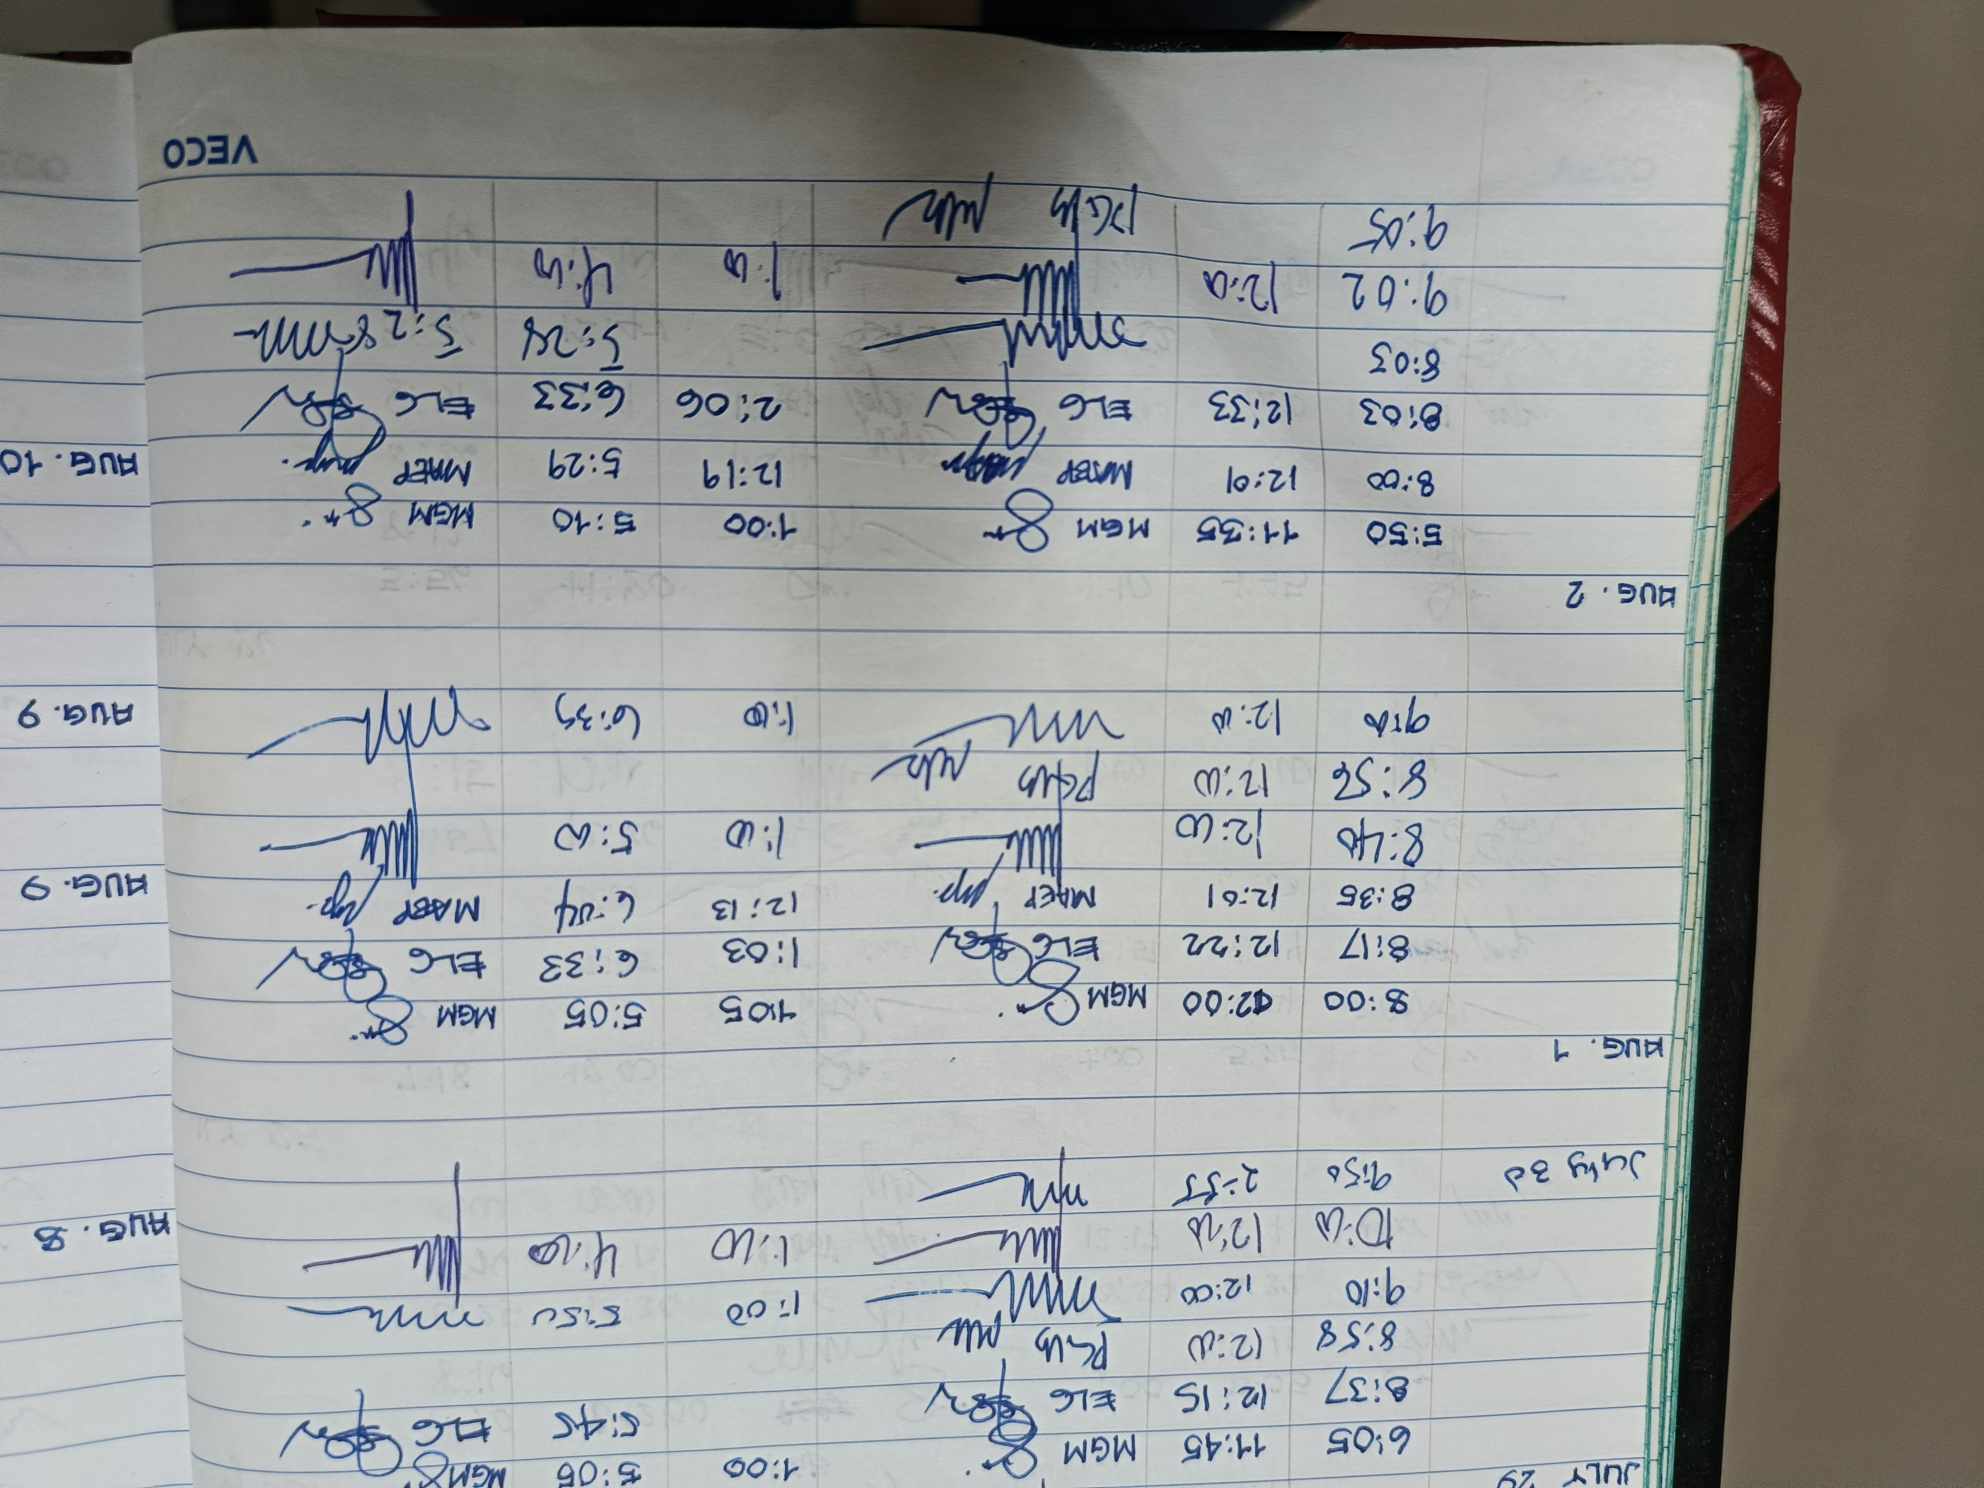 JULY 29
6:05 11:45 MGM 1:00 5:05 MGM
8:37 12:15 ELG 5:45 ELG
8:58 12:00
9:10 12:00 1:00 5:50
10:00 12:00 1:00 4:00
July 30 9:50 2:55
AUG. 1
8:00 12:00 MGM 1:05 5:05 MGM
8:17 12:22 ELG 1:03 6:33 ELG
8:35 12:01 MAEP 12:13 6:04 MAEP
8:40 12:00 1:00 5:00
8:56 12:00
9:00 12:00 1:00 6:35
AUG. 2
5:50 11:35 MGM 1:00 5:10 MGM
8:00 12:01 MAEP 12:19 5:29 MAEP
8:03 12:33 ELG 2:06 6:33 ELG
8:03 5:28 5:28
9:02 12:00 1:00 4:00
9:05
VECO
AUG. 8
AUG. 9
AUG. 9
AUG. 10